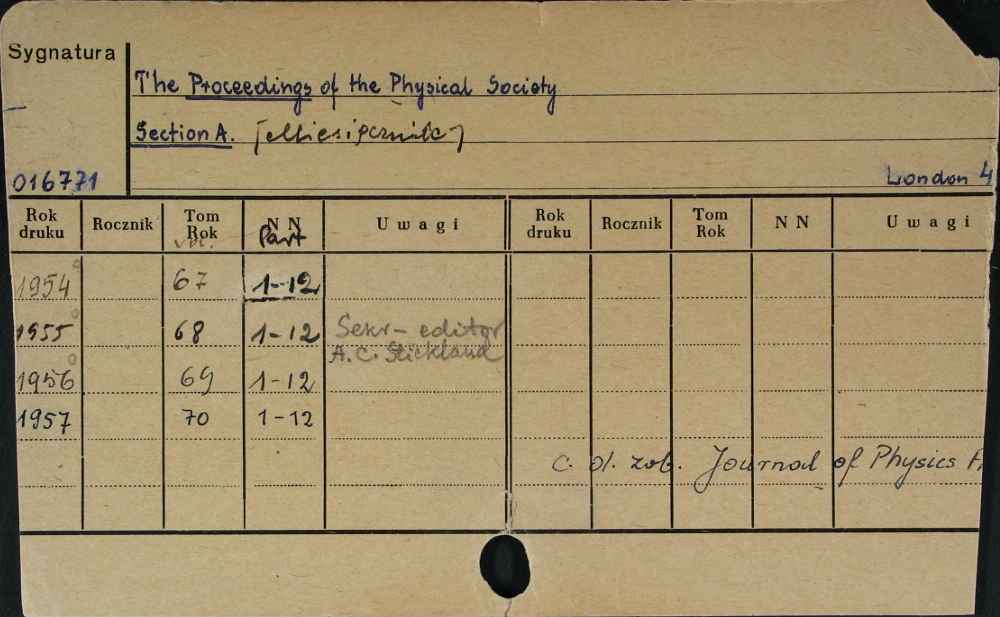 Sygnatura
The Proceedings of the Physical Society
Section A. [Miesięcznik]
016771
London 4
Rok druku Rocznik Tom Rok NN Uwagi Rok druku Rocznik Tom Rok NN Uwagi
vol. Part
1954 67 1-12
1955 68 1-12 Sekr-editor
A.C. Stickland
1956 69 1-12
1957 70 1-12
C. d. zob. Journal of Physics A